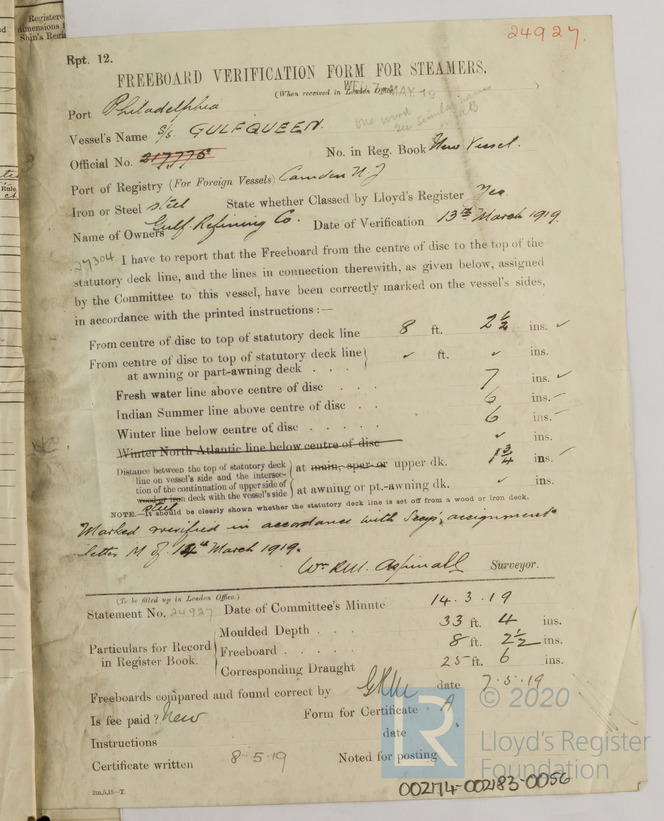 Registered
dimensions
Ship's Reg
Rule
24927.
Rpt. 12.
FREEBOARD VERIFICATION FORM FOR STEAMERS.
(When received in London Office) MAY 19
Port Philadelphia
one word
see
Vessel's Name S/s. GULFQUEEN.
Official No. 217775 No. in Reg. Book New Vessel.
Port of Registry (For Foreign Vessels) Camden N.J
Iron or Steel steel State whether Classed by Lloyd's Register Yes
Name of Owners Gulf Refining Co. Date of Verification 13th March 1919.
27304 I have to report that the Freeboard from the centre of disc to the top of the
statutory deck line, and the lines in connection therewith, as given below, assigned
by the Committee to this vessel, have been correctly marked on the vessel's sides,
in accordance with the printed instructions :—
From centre of disc to top of statutory deck line 8 ft. 2 1/2 ins. ✓
From centre of disc to top of statutory deck line } ✓ ft. ✓ ins.
at awning or part-awning deck . . .
Fresh water line above centre of disc . . . 7 ins. ✓
Indian Summer line above centre of disc . . 6 ins.
Winter line below centre of disc . . . . . 6 ins.
Winter North Atlantic line below centre of disc ✓ ins.
Distance between the top of statutory deck
line on vessel's side and the intersec-
tion of the continuation of upper side of
wood or iron deck with the vessel's side
steel
at main, spar or upper dk. 1 3/4 ins.
at awning or pt.-awning dk. ✓ ins.
NOTE.—It should be clearly shown whether the statutory deck line is set off from a wood or iron deck.
Marked & verified in accordance with Secy's assignment
letter M of 14th March 1919.
Wm R.M. Aspinall Surveyor.
(To be filled up in London Office.)
Statement No. 24927 Date of Committee's Minute 14.3.19
Particulars for Record
in Register Book.
Moulded Depth . . . 33 ft. 4 ins.
Freeboard . . . . . 8 ft. 2 1/2 ins.
Corresponding Draught 25 ft. 6 ins.
Freeboards compared and found correct by date 7.5.19
Is fee paid? New Form for Certificate A
Instructions date
Certificate written 8-5-19 Noted for posting
2m,5,18—T.
R
© 2020
Lloyd's Register
Foundation
002174-002183-0056